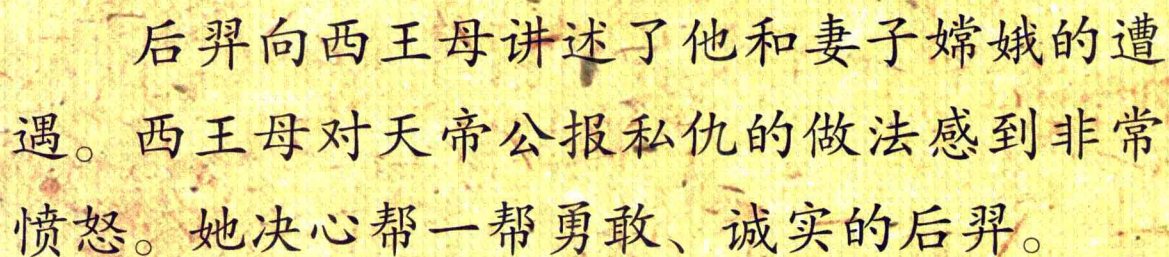 后羿向西王母讲述了他和妻子嫦娥的遭
遇。西王母对天帝公报私仇的做法感到非常
愤怒。她决心帮一帮勇敢、诚实的后羿。